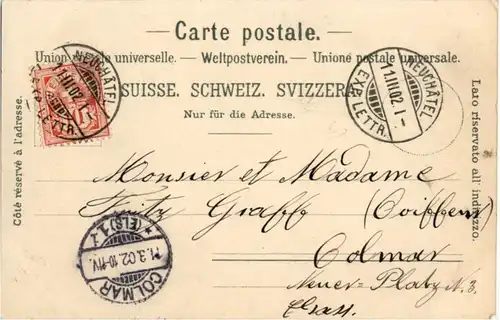 Carte postale.
Union postale universelle. — Weltpostverein. — Unione postale universale.
SUISSE. SCHWEIZ. SVIZZERA.
Nur für die Adresse.
Côté réservé à l'adresse.
Laro riservato all' indirizzo.
NEUCHÂTEL
11.III.02
EXP. LETTR.
NEUCHÂTEL
11.III.02. I-
EXP. LETTR.
Monsier et Madame
Fritz Graff (Coiffeur)
Colmar
Neuer-Platz N. 3
Elsass.
* (ELS) 1. *
11.3.02. 10-11V.
COLMAR